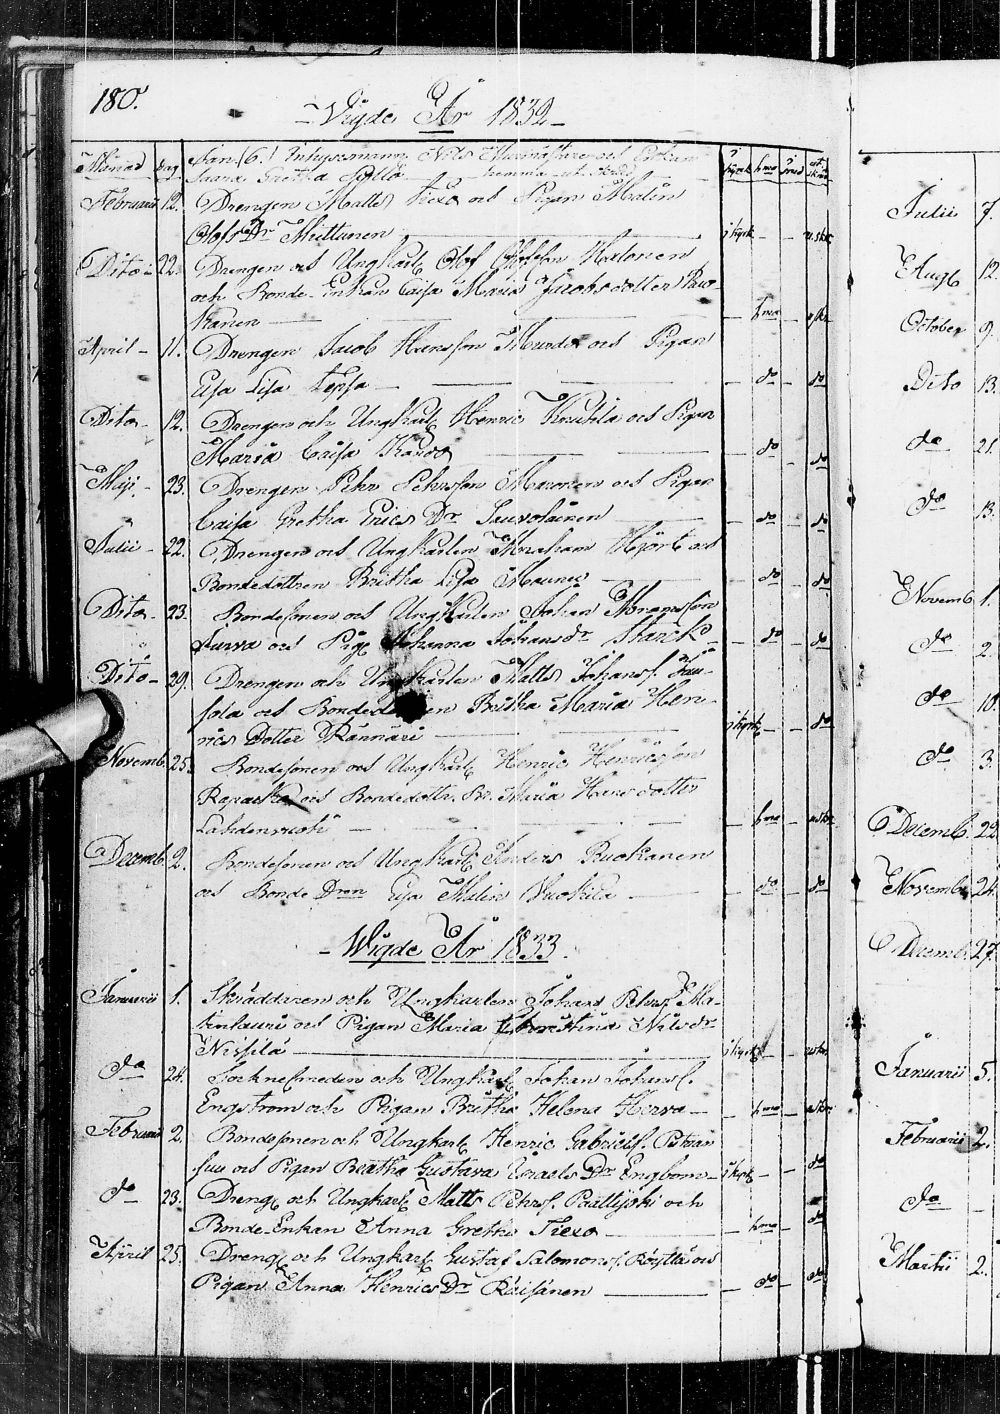 180.
Vigde År 1832
Månad Dag Jan. (6.) Inhysesmannen Nils och Enkan i kyrk hma i sned utskrn
Saara Gretha hemma
Februarii 12. Drengen Matts Tiexo och Pigan Malin
Olofs Dr Miettunen i kyrk u. skr
Dito 22. Drengen och Ungkarl. Olof Olofsson Halonen
och Bonde-Enkan Caisa Maria Jacobsdotter Ruo-
kanen hma uskr
April 11. Drengen Jacob Hansson och Pigan
Lisa do do
Dito 12. Drengen och Ungkarl. Henric och Pigan
Maria Caisa do do
Maji 23. Drengen Pehr Pehrsson Maronen och Pigan
Caisa Gretha Erics Dr Sauvolainen do do
Julii 22. Drengen och Ungkarlen Abraham Hjort och
Bondedottren Britha Lisa do do
Dito 23. Bondesonen och Ungkarlen Johan Abramsson
Turva och Pig. Johanna Johansdr. Starck do do
Dito 29. Drengen och Ungkarlen Matts Johanss.
sola och Bonded en Britha Maria Hen-
rics Dotter Kannari i kyrk do
Novemb. 25. Bondesonen och Ungkarl. Henric Henricsson
och Bondedottr. Br. Maria Hans dotter
Lahdenvuoti hma uskr
Decemb. 2. Bondesonen och Ungkarl. Anders Ruokanen
och Bonde Dren Lisa Malin Huckila do do
Wigde År 1833.
Januarii 1. Skräddaren och Ungkarlen Johan Pehrs. Ma-
tinlauri och Pigan Maria Christina Nilsdr
Nissilä i kyrk uskr
do 24. Socknesmeden och Ungkarl. Johan Johanss.
Engström och Pigan Britha Helena Herva hma uskr
Februarii 2. Bondesonen och Ungkarl. Henric Gabrielss.
och Pigan Beatha Gustava Israels Dr Engbom i kyrk do
do 23. Dreng och Ungkarl. Matts Pehrss. och
Bonde-Enkan Anna Gretha Tiexo hma do
April 25. Dreng och Ungkarl. Gustaf Salomonss. och
Pigan Anna Henrics Dr Räisänen do do
Julii 7.
Aug. 12.
October 9.
Dito 13.
do 21.
do 13.
Novemb. 1.
do 2.
do 10.
do 3.
Decemb. 22.
Novemb. 24.
Decemb. 27.
Januarii 5.
Februarii 2.
do
Martii 2.